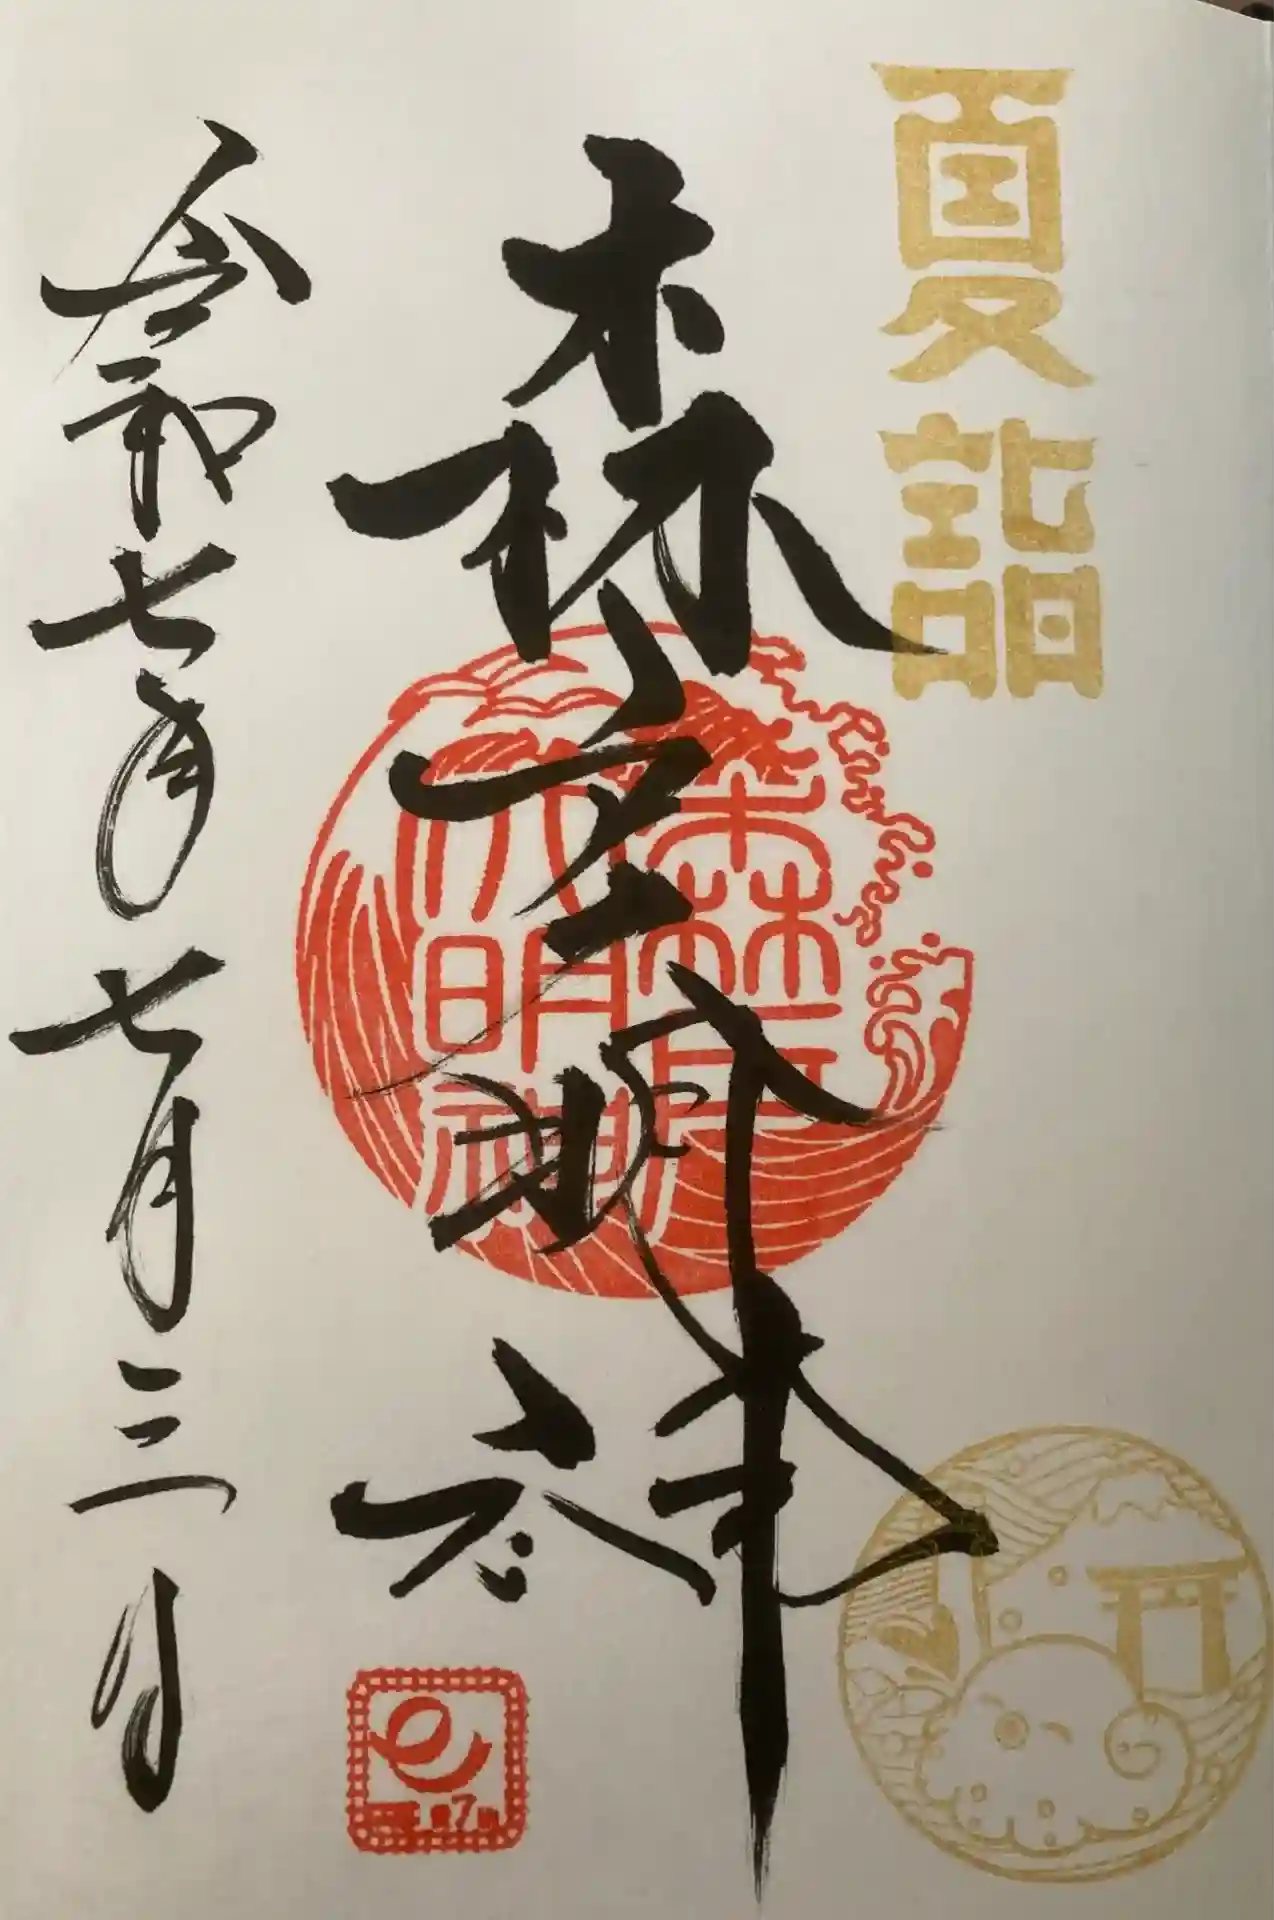 夏詣
森戸大明神
森戸大明神
令和七年七月三日